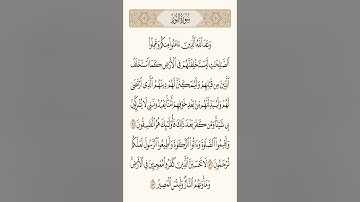 سُورَةُ النُّورِ
وَعَدَ ٱللَّهُ ٱلَّذِينَ ءَامَنُوا۟ مِنكُمْ وَعَمِلُوا۟
ٱلصَّٰلِحَٰتِ لَيَسْتَخْلِفَنَّهُمْ فِى ٱلْأَرْضِ كَمَا ٱسْتَخْلَفَ
ٱلَّذِينَ مِن قَبْلِهِمْ وَلَيُمَكِّنَنَّ لَهُمْ دِينَهُمُ ٱلَّذِى ٱرْتَضَىٰ
لَهُمْ وَلَيُبَدِّلَنَّهُم مِّنۢ بَعْدِ خَوْفِهِمْ أَمْنًا يَعْبُدُونَنِى لَا يُشْرِكُونَ
بِى شَيْـًٔا وَمَن كَفَرَ بَعْدَ ذَٰلِكَ فَأُو۟لَٰٓئِكَ هُمُ ٱلْفَٰسِقُونَ
وَأَقِيمُوا۟ ٱلصَّلَوٰةَ وَءَاتُوا۟ ٱلزَّكَوٰةَ وَأَطِيعُوا۟ ٱلرَّسُولَ لَعَلَّكُمْ
تُرْحَمُونَ لَا تَحْسَبَنَّ ٱلَّذِينَ كَفَرُوا۟ مُعْجِزِينَ فِى ٱلْأَرْضِ
وَمَأْوَىٰهُمُ ٱلنَّارُ وَلَبِئْسَ ٱلْمَصِيرُ